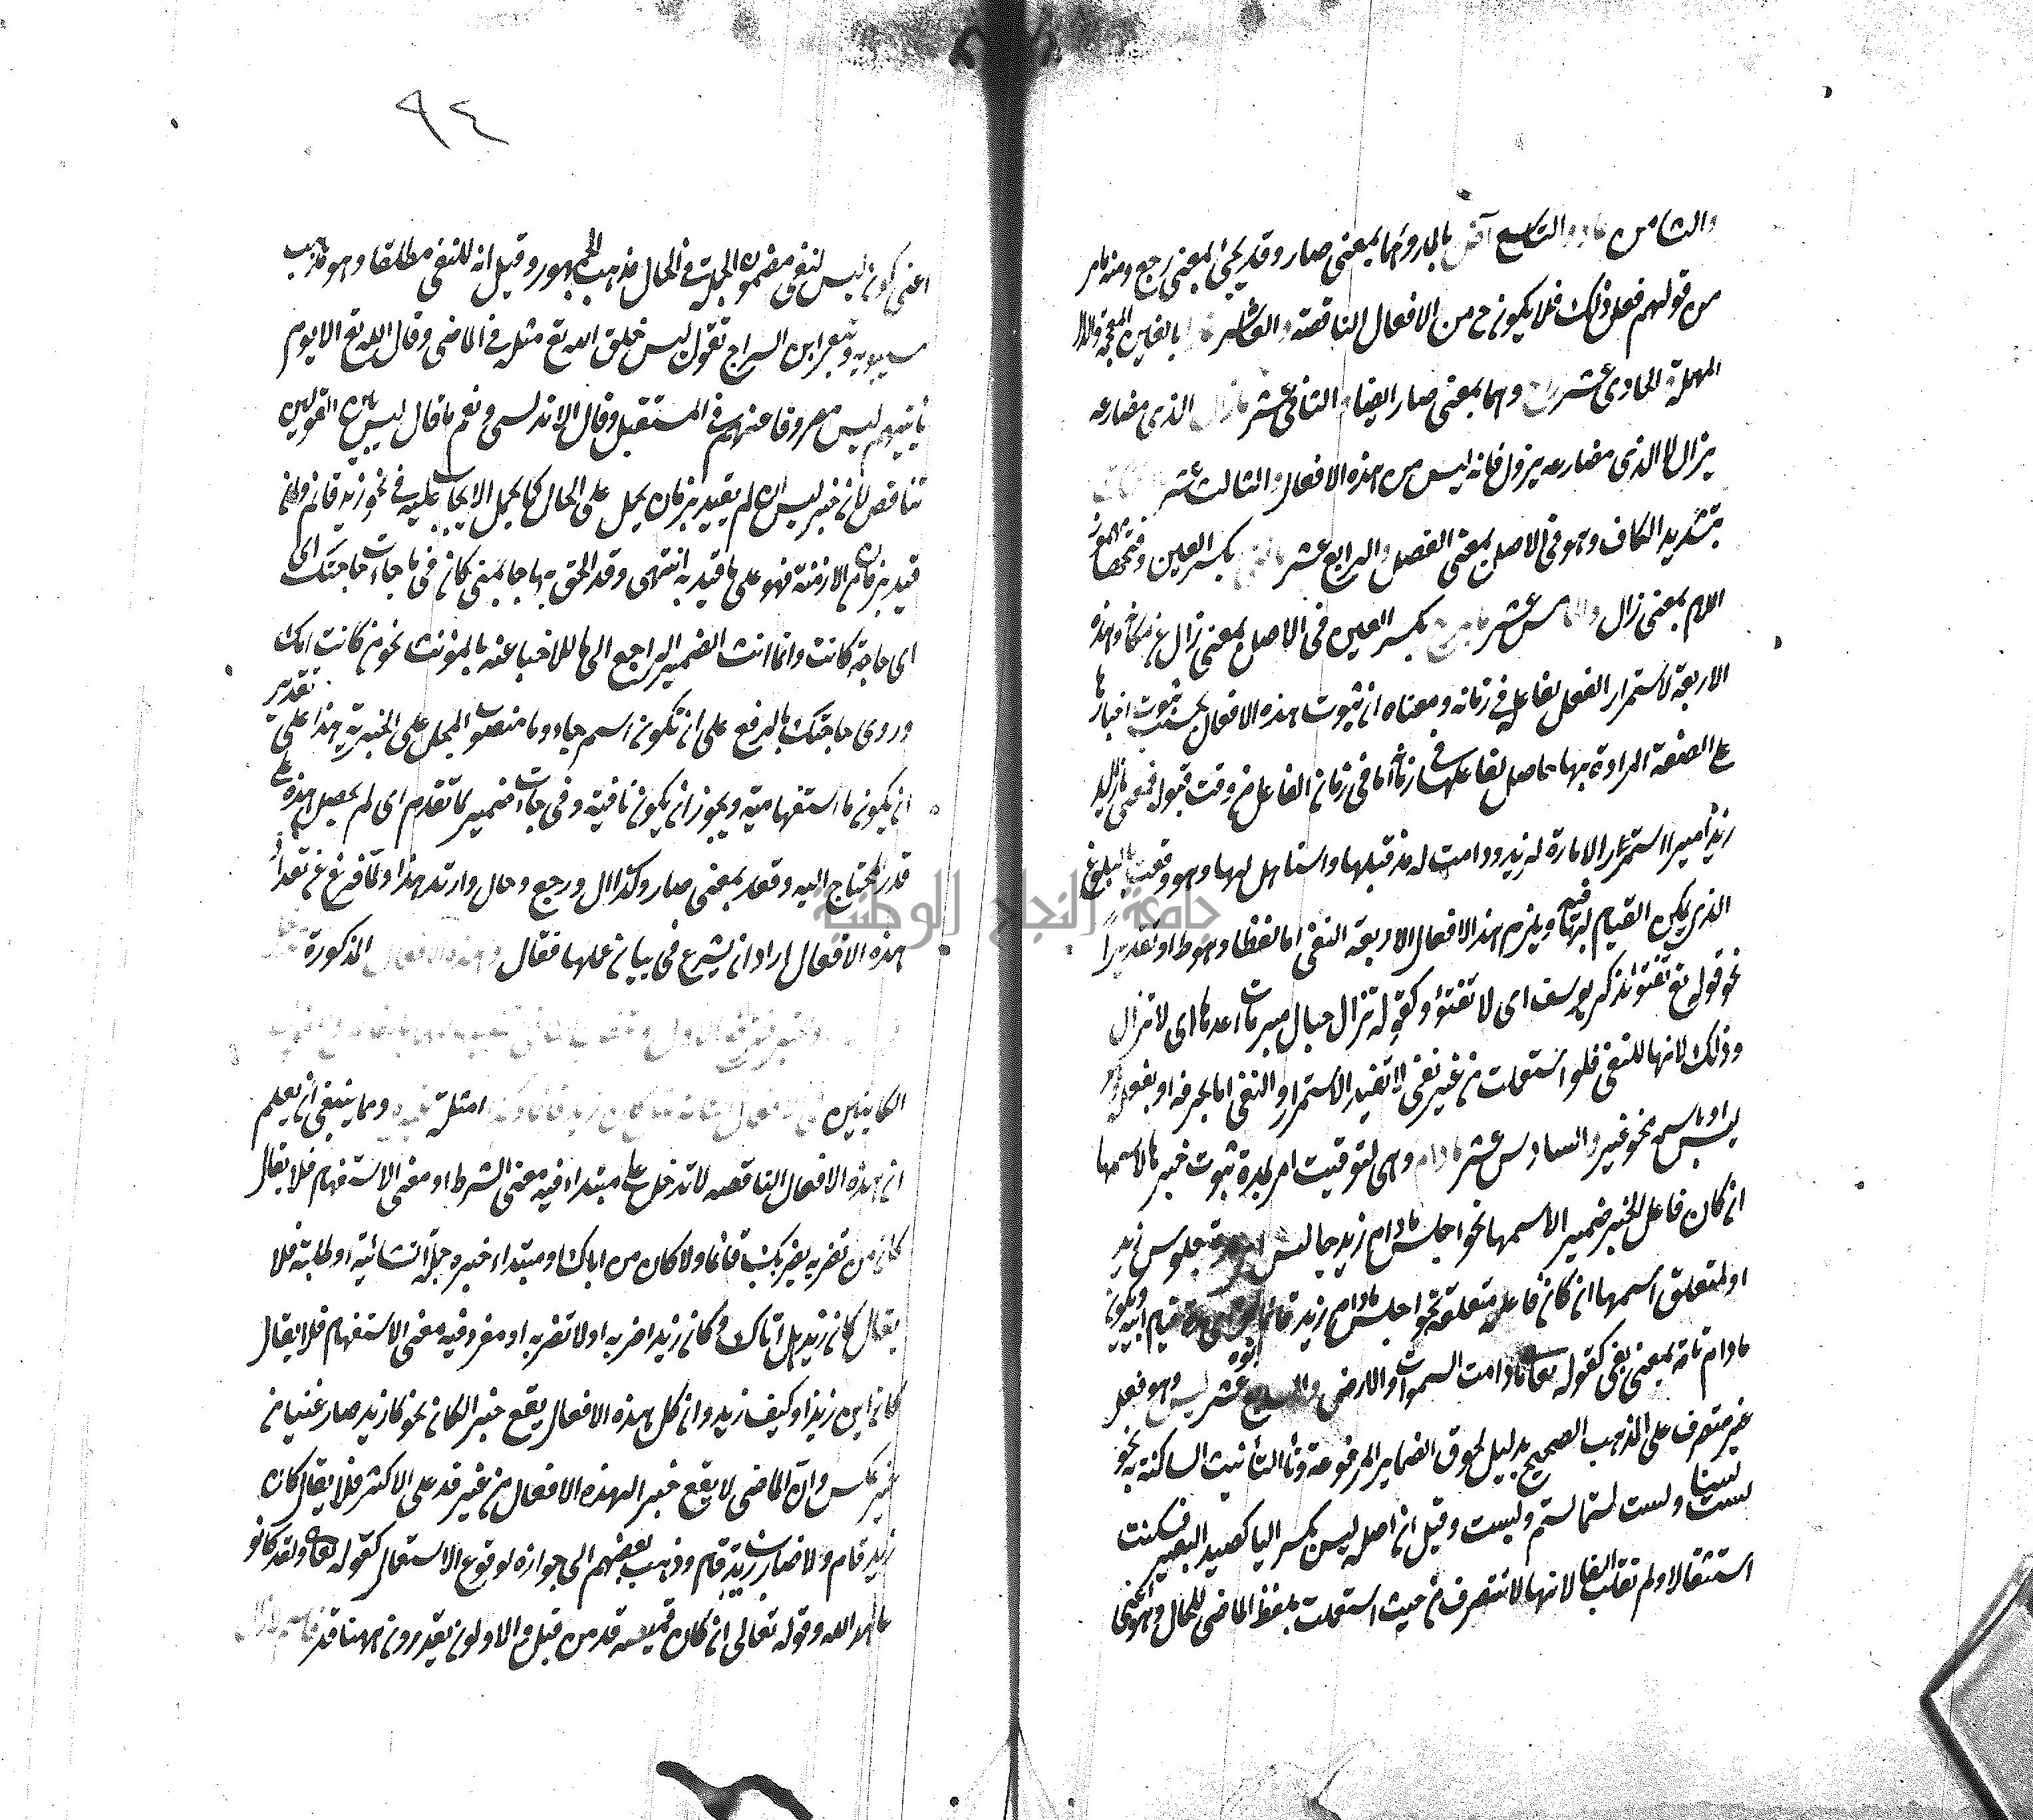 والثامن عاد والتاسع آض بالمد وهما بمعنى صار وقد يجئ بمعنى رجع ومنه ما مر
من قولهم فعل ذلك فلا يكون ح من الافعال الناقصة والعاشر بالغين المعجمة والدال
المهملة الحادى عشر راح وهما بمعنى صار ايضا الثانى عشر ما زال الذى مضارعه
يزال لا الذى مضارعه يزول فانه ليس من هذه الافعال والثالث عشر
بتشديد الكاف وهو فى الاصل بمعنى الفصل والرابع عشر بكسر العين وفتحها مهموز
اللام بمعنى زال والخامس عشر ما برح بكسر العين فى الاصل بمعنى زال عن مكانه وهذه
الاربعة لاستمرار الفعل بفاعله فى زمانه ومعناه ان ثبوت هذه الافعال بحسب ثبوت اخبارها
على الصفة المرادة بها حاصل لفاعلها فى زمانها فى زمان الفاعل من وقت قبوله فمعنى ما زال
زيد اميرا استمرار الامارة لزيد ودامت له مذ قبلها واستاهل لها وهو وقت البلوغ
الذى يمكن القيام بها فيه ويلزم هذه الافعال الاربعة النفى اما لفظا وهو ط او تقديرا
نحو قوله تع تفتؤ تذكر يوسف اى لا تفتؤ وكقوله تزال حبال مبرمات اعدها اى لا تزال
وذلك لانها للنفى فلو استعملت من غير نفى لا تفيد الاستمرار والنفى اما بحرفه او بفعله نحو
ليس او باسم نحو غير والسادس عشر ما دام وهى لتوقيت امر بمدة ثبوت خبرها لاسمها
ان كان فاعل الخبر ضمير الاسمها نحو اجلس ما دام زيد جالس جلوس زيد
او لمتعلق اسمها ان كان فاعله متعلقه نحو اجلس ما دام زيد قائما ابوه قيام ابيه ويكون
ما دام تامة بمعنى بقى كقوله تعالى ما دامت السموات والارض والسابع عشر ليس وهو فعل
غير متصرف على المذهب الصحيح بدليل لحوق الضمائر المرفوعة وتاء التأنيث الساكنة به نحو
لست لسنا ولست لستما لستم وليست وقيل ان اصله ليس بكسر اليا كصيد البعير فسكنت
استثقالا ولم تقلب الفا لانها لا تتصرف من حيث استعملت بلفظ الماضى للحال وهو اعنى
٩٤
اعنى كون ليس لنفى مضمون الجملة فى الحال مذهب الجمهور وقيل انه للنفى مطلقا وهو مذهب
سيبويه وتبعه ابن السراج تقول ليس خلق الله تع مثله فى الماضى وقال الله تع الا يوم
ياتيهم ليس مصروفا عنهم فى المستقبل وقال الاندلسى ونعم ما قال ليس بين القولين
تناقض لان خبر ليس ان لم يقيد بزمان يحمل على الحال كما يحمل الايجاب عليه فى نحو زيد قائم واذا
قيد بزمان من الازمنة فهو على ما قيد به انتهى وقد الحق بها جا بمعنى كان فى ما جاءت حاجتك اى
اى حاجة كانت وانما انث الضمير الراجع الى ما للاخبا عنه بالمؤنث نحو من كانت امك
وروى حاجتك بالرفع على ان تكون اسم جاء وما منصوب المحل على الخبرية هذا على تقدير
ان يكون ما استفهامية ويجوز ان يكون نافية وفى جاءت ضمير لما تقدم اى لم يحصل هذه على
قدر محتاج اليه وقعد بمعنى صار وكذا ال ورجع وحال وارتد هذا ولما فرغ عن تعداد
هذه الافعال اراد ان يشرع فى بيان عملها فقال وهذه الافعال المذكورة
الكائنين امثلة ومما ينبغى ان يعلم
ان هذه الافعال الناقصه لا تدخل على مبتداء فيه معنى الشرط او معنى الاستفهام فلا يقال
كان من تضربه يضربك قائما ولا كان من اباك او مبتداء خبره جملة انشائية او طلبية فلا
يقال كان زيد هل اتاك و كان زيد اضربه او لا تضربه او مفرد فيه معنى الاستفهام فلا يقال
كان اين زيد او كيف زيد وان كل هذه الافعال يقع خبر الكان نحو كان زيد صار غنيا من
غير عكس وان الماضى لا يقع خبر الهذه الافعال من غير قد على الاكثر فلا يقال كان
زيد قام ولا صار زيد قام وذهب بعضهم الى جوازه لوقوع الاستعمال كقوله تعالى ولقد كانوا
عاهدوا الله وقوله تعالى ان كان قميصه قد من قبل والاولون يقدرون ههنا قد
جامعة النجاح الوطنية